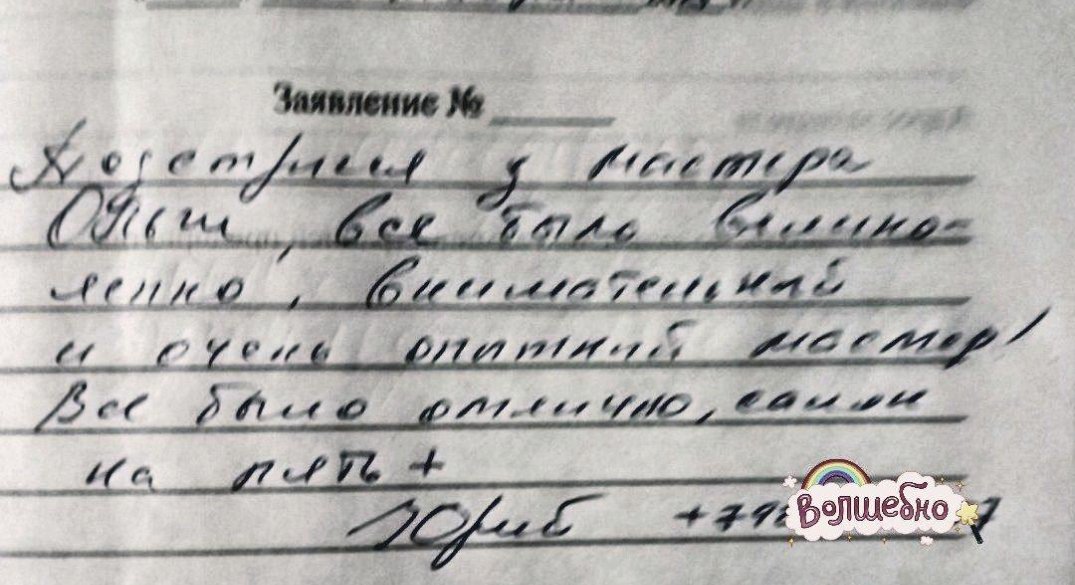 Заявление №
Подстригся у мастера
Ольги, все было велико-
лепно, внимательный
и очень опытный мастер!
Все было отлично, салон
на пять +
Юрий +79
Волшебно